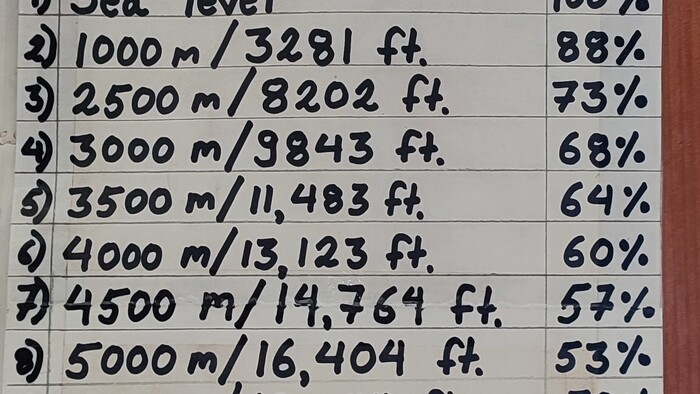 1) Sea level 100%
2) 1000 m/3281 ft. 88%
3) 2500 m/8202 ft. 73%
4) 3000 m/9843 ft. 68%
5) 3500 m/11,483 ft. 64%
6) 4000 m/13,123 ft. 60%
7) 4500 m/14,764 ft. 57%
8) 5000 m/16,404 ft. 53%